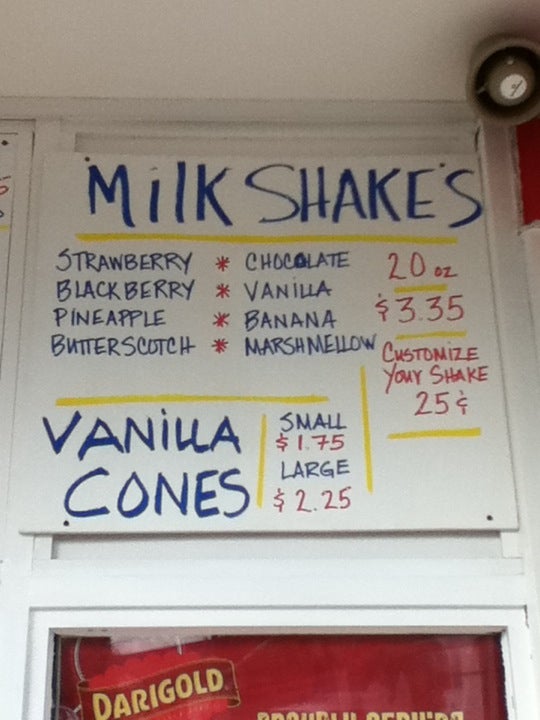 MilK SHAKE'S
STRAWBERRY * CHOCOLATE
BLACKBERRY * VANILLA
PINEAPPLE * BANANA
BUTTERSCOTCH * MARSHMELLOW
20 oz
$3.35
CUSTOMIZE
YOUR SHAKE
25¢
VANILLA
CONES
SMALL
$1.75
LARGE
$2.25
DARIGOLD
PROUDLY SERVING